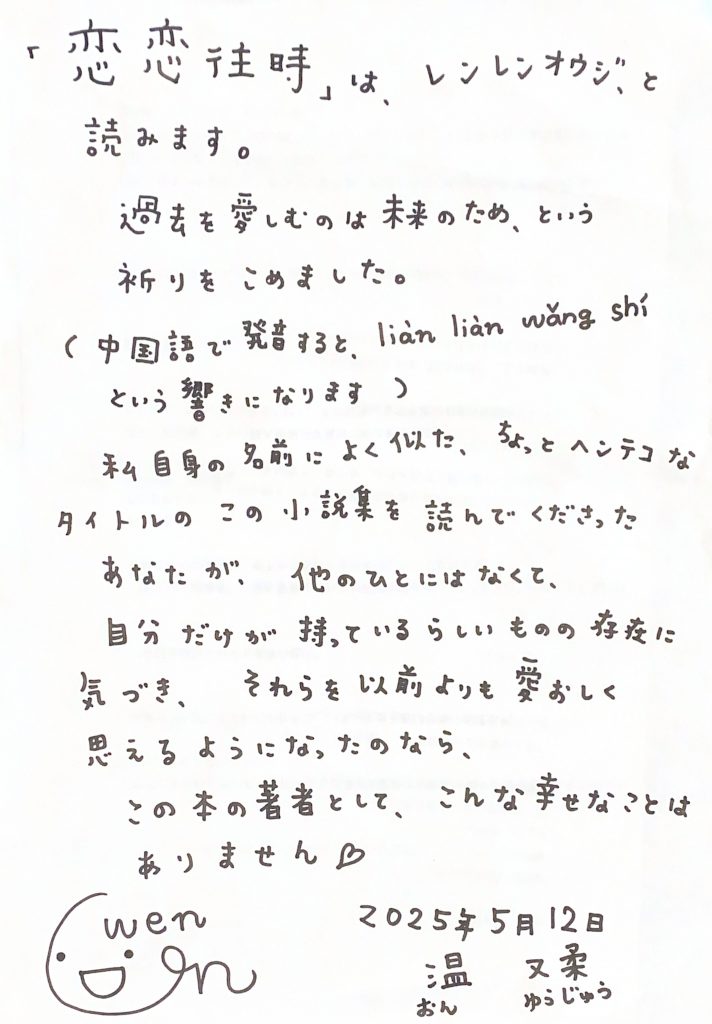 「恋恋往時」は、レンレンオウジ、と
読みます。
過去を愛しむのは未来のため、という
祈りをこめました。
(中国語で発音すると、liàn liàn wǎng shí
という響きになります)
私自身の名前によく似た、ちょっとヘンテコな
タイトルのこの小説集を読んでくださった
あなたが、他のひとにはなくて、
自分だけが持っているらしいものの存在に
気づき、それらを以前よりも愛おしく
思えるようになったのなら、
この本の著者として、こんな幸せなことは
ありません♡
wen
on
2025年5月12日
温 又柔
おん ゆうじゅう